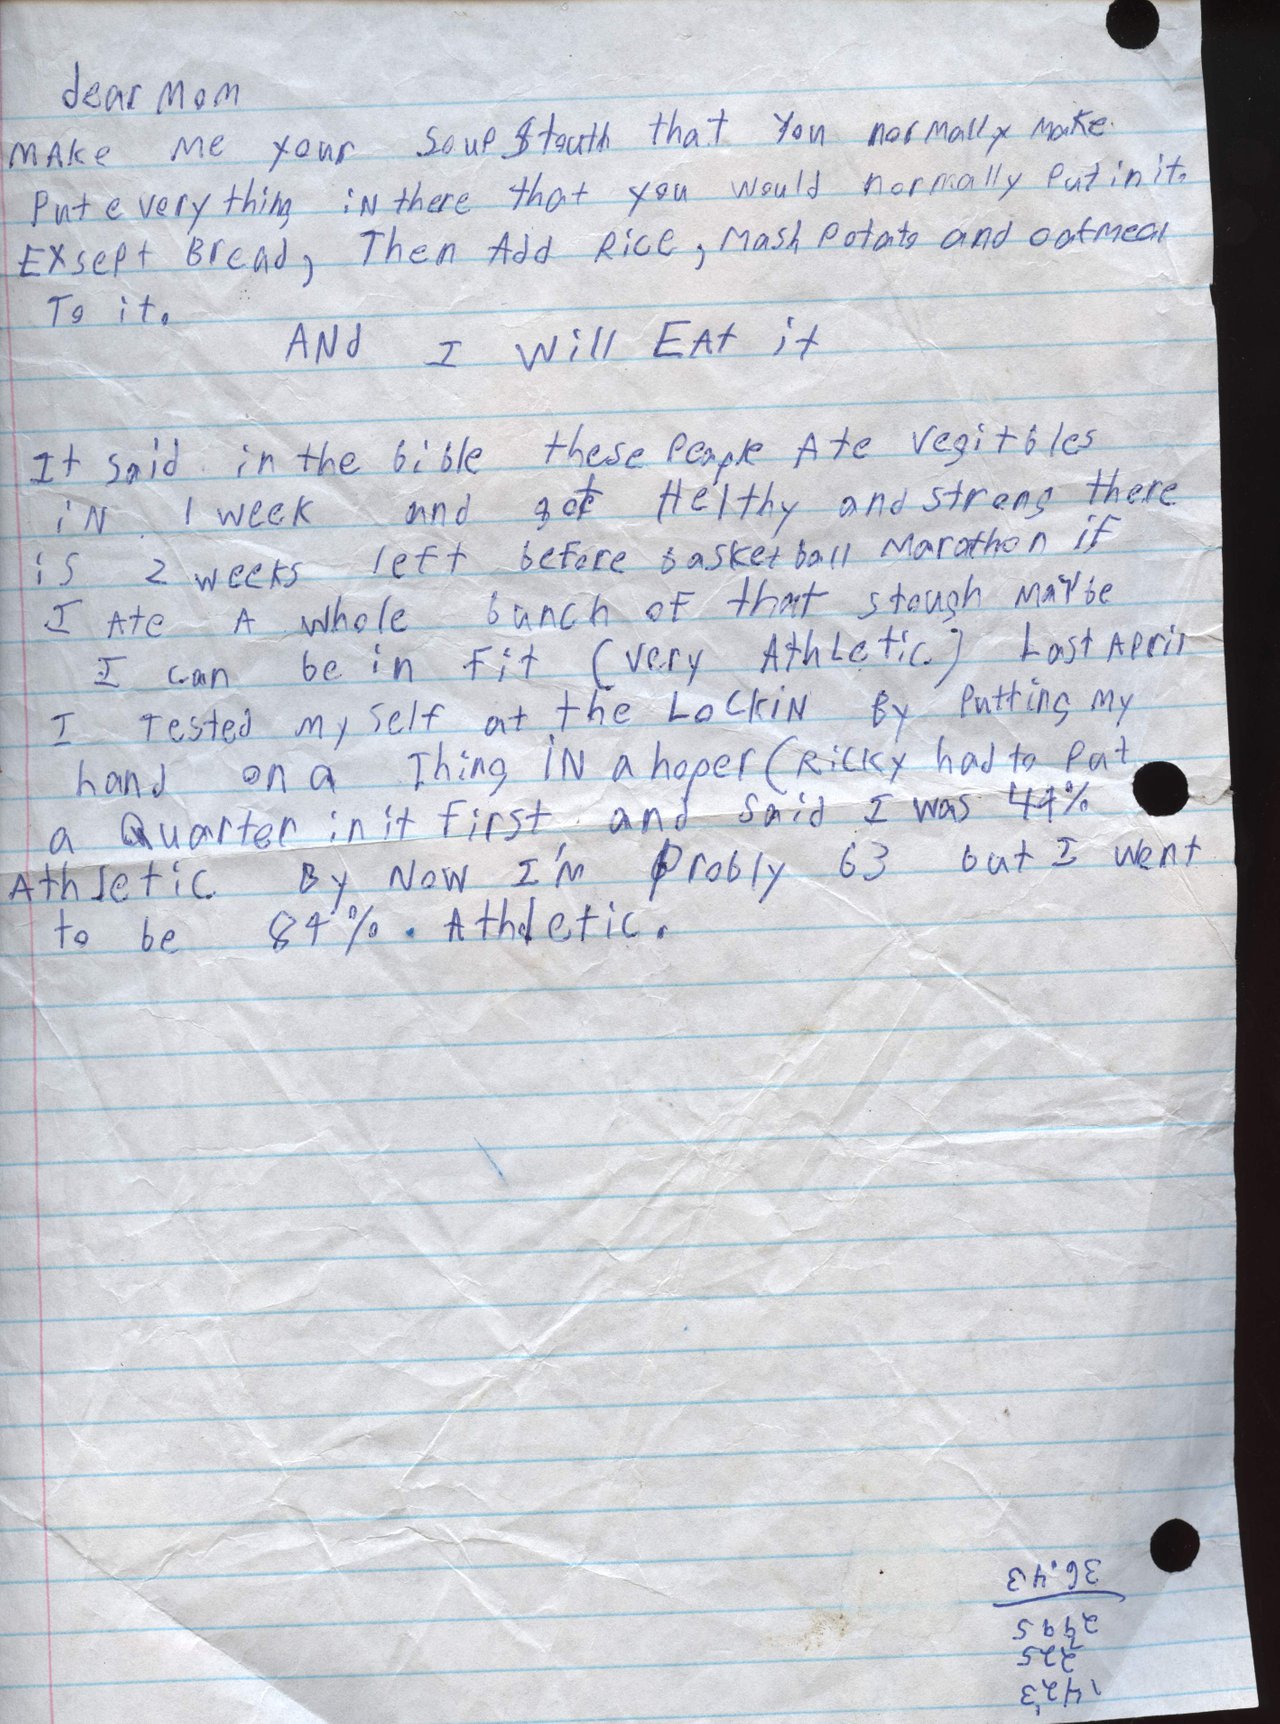 dear Mom
MAKe Me your Soup Stouth that You normally Make.
Put every thing iN there that you would normally Put in it.
EXsept Bread, Then Add Rice, Mash Potato and oatmeal
To it.
ANd I Will EAt it
It said in the bible these People Ate vegitbles
iN 1 week and got Helthy and strong there
is 2 weeks left before basket ball Marathon if
I Ate A whole bunch of that stough Maybe
I can be in Fit (very AthLetic.) Last April
I Tested my self at the LocKiN By Putting my
hand on a Thing IN a hoper (RicKy had to Put
a Quarter in it first. and said I was 44%
Athletic By Now I'm Probly 63 but I went
to be 84%. Athletic.
1423
225
2995
36.43